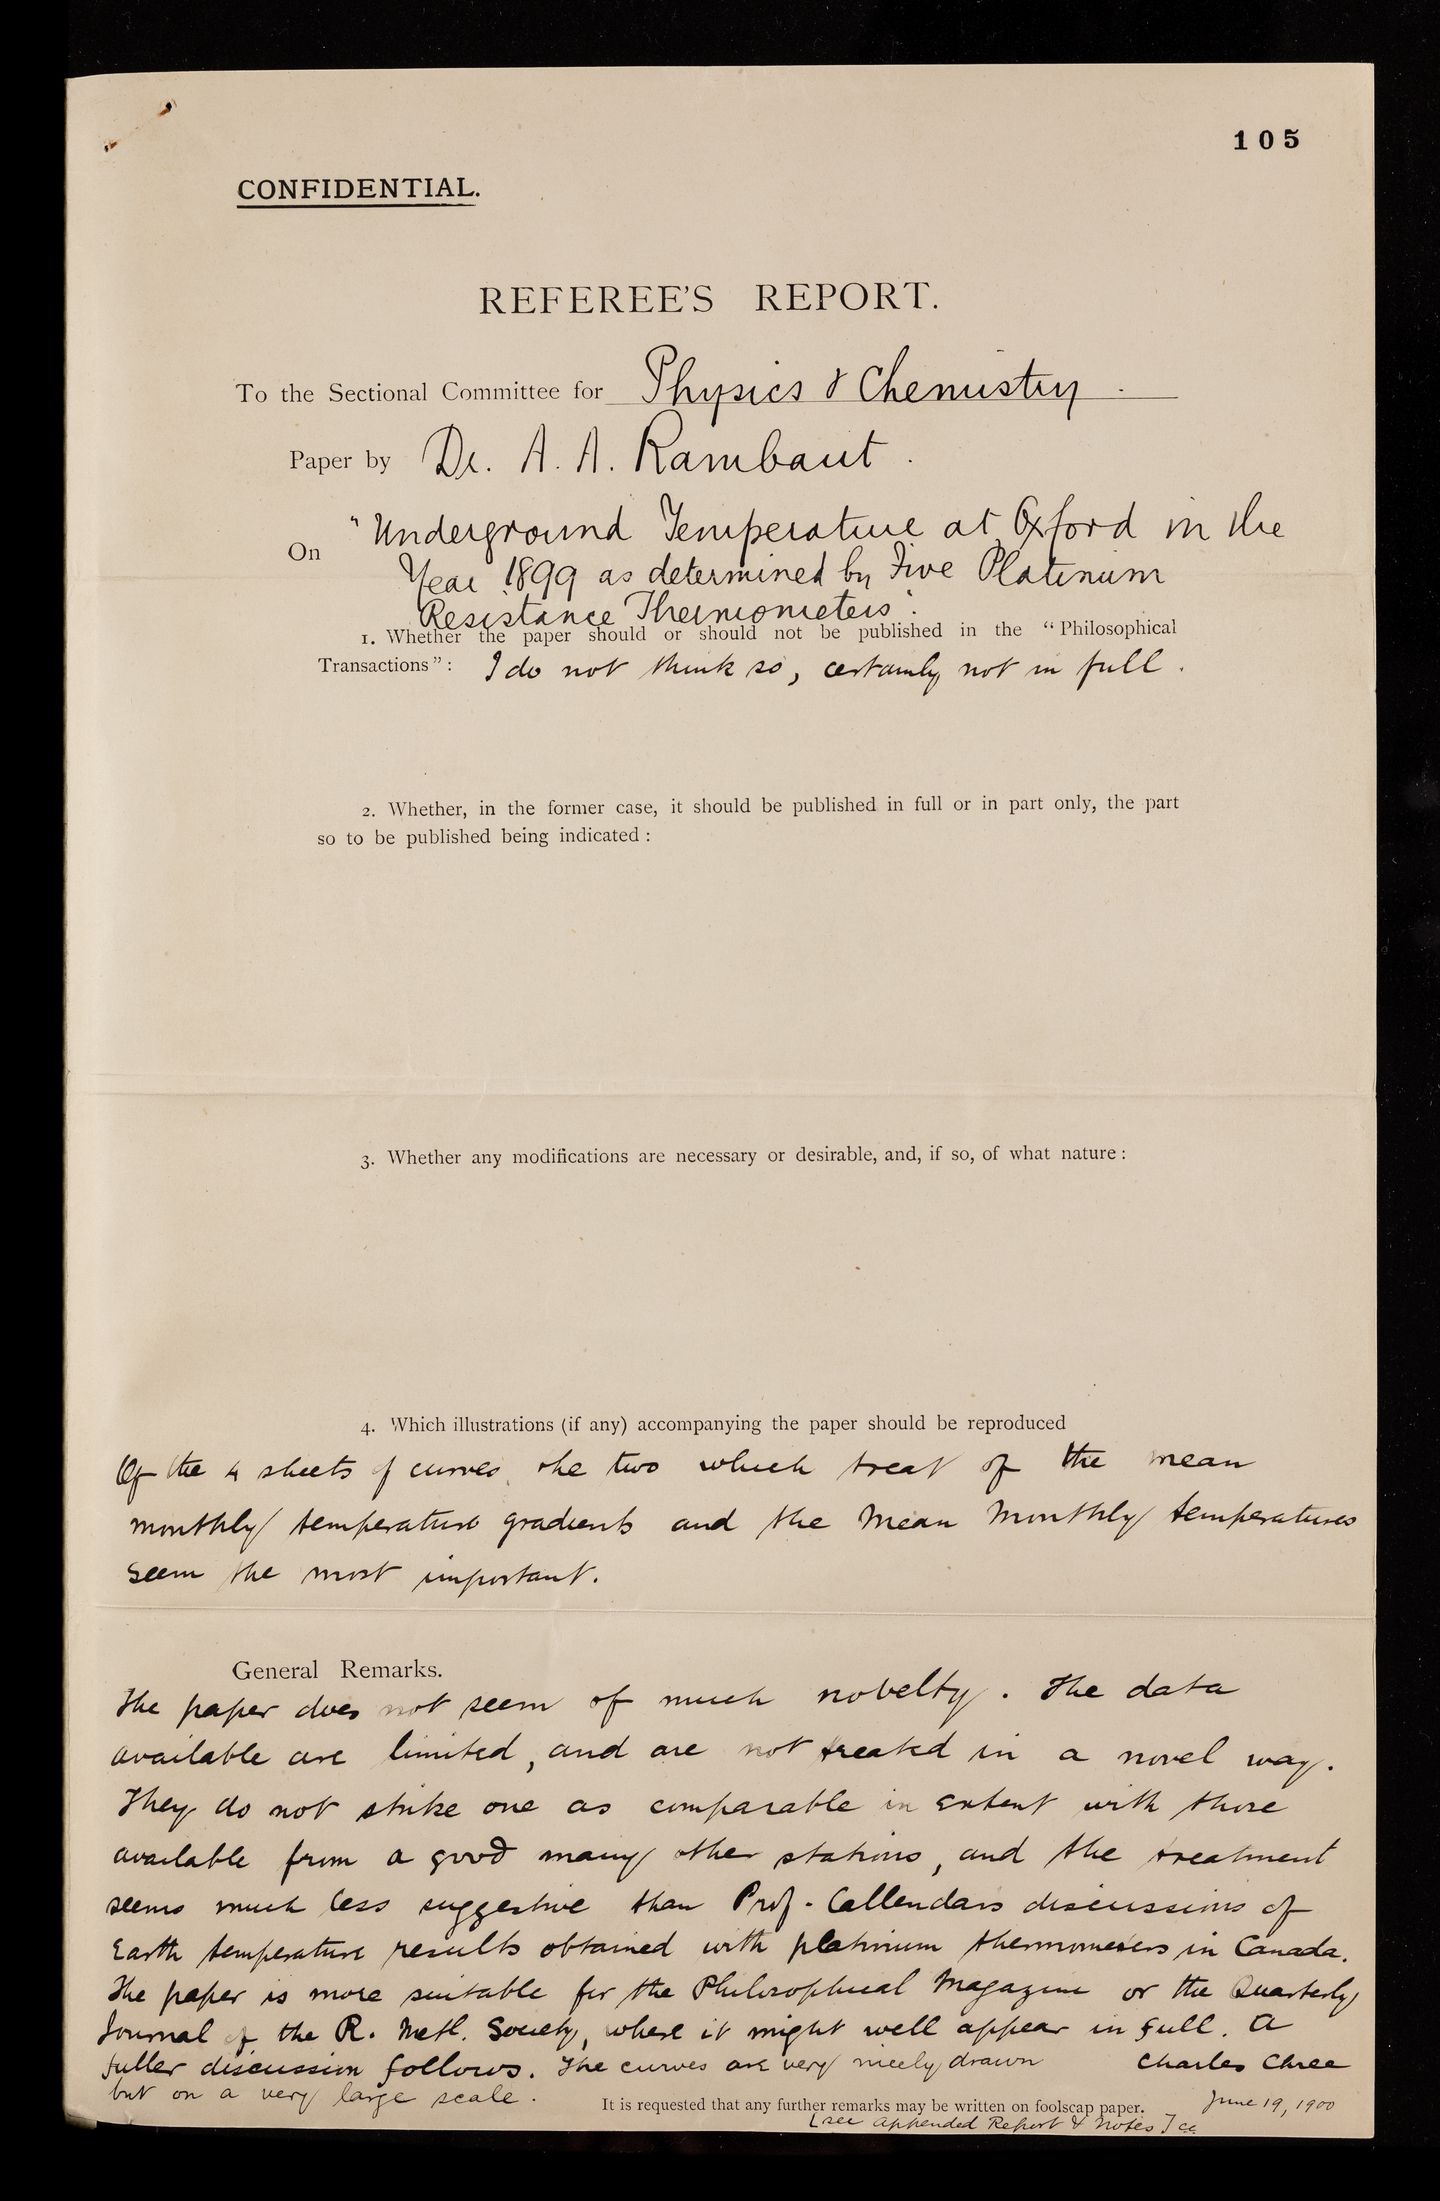 105
CONFIDENTIAL.
REFEREE'S REPORT.
To the Sectional Committee for Physics & Chemistry.
Paper by Dr. A. A. Rambaut.
On "Underground Temperature at Oxford in the
Year 1899 as determined by Five Platinum
Resistance Thermometers".
1. Whether the paper should or should not be published in the "Philosophical
Transactions": I do not think so, certainly not in full.
2. Whether, in the former case, it should be published in full or in part only, the part
so to be published being indicated:
3. Whether any modifications are necessary or desirable, and, if so, of what nature:
4. Which illustrations (if any) accompanying the paper should be reproduced
Of the 4 sheets of curves, the two which treat of the mean
monthly temperature gradients and the mean monthly temperatures
seem the most important.
General Remarks.
The paper does not seem of much novelty. The data
available are limited, and are not treated in a novel way.
They do not strike one as comparable in extent with those
available from a good many other stations, and the treatment
seems much less suggestive than Prof. Callendars discussions of
Earth temperature results obtained with platinum thermometers in Canada.
The paper is more suitable for the Philosophical Magazine or the Quarterly
Journal of the R. Metl. Society, where it might well appear in full. A
fuller discussion follows. The curves are very nicely drawn Charles Chree
but on a very large scale.
It is requested that any further remarks may be written on foolscap paper. June 19, 1900
[see appended Report & Notes] CC